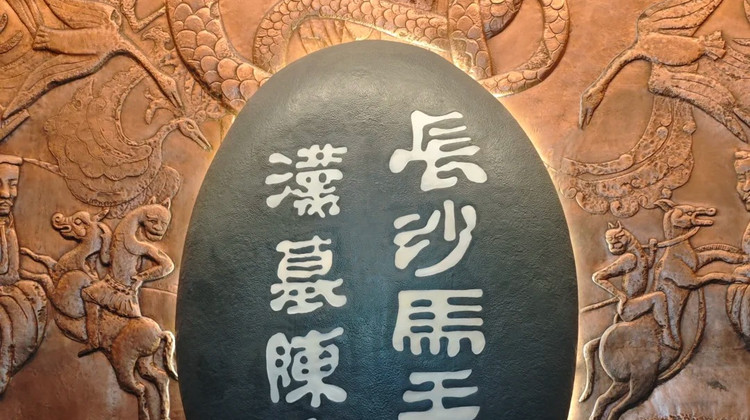 長沙馬王
漢墓陳